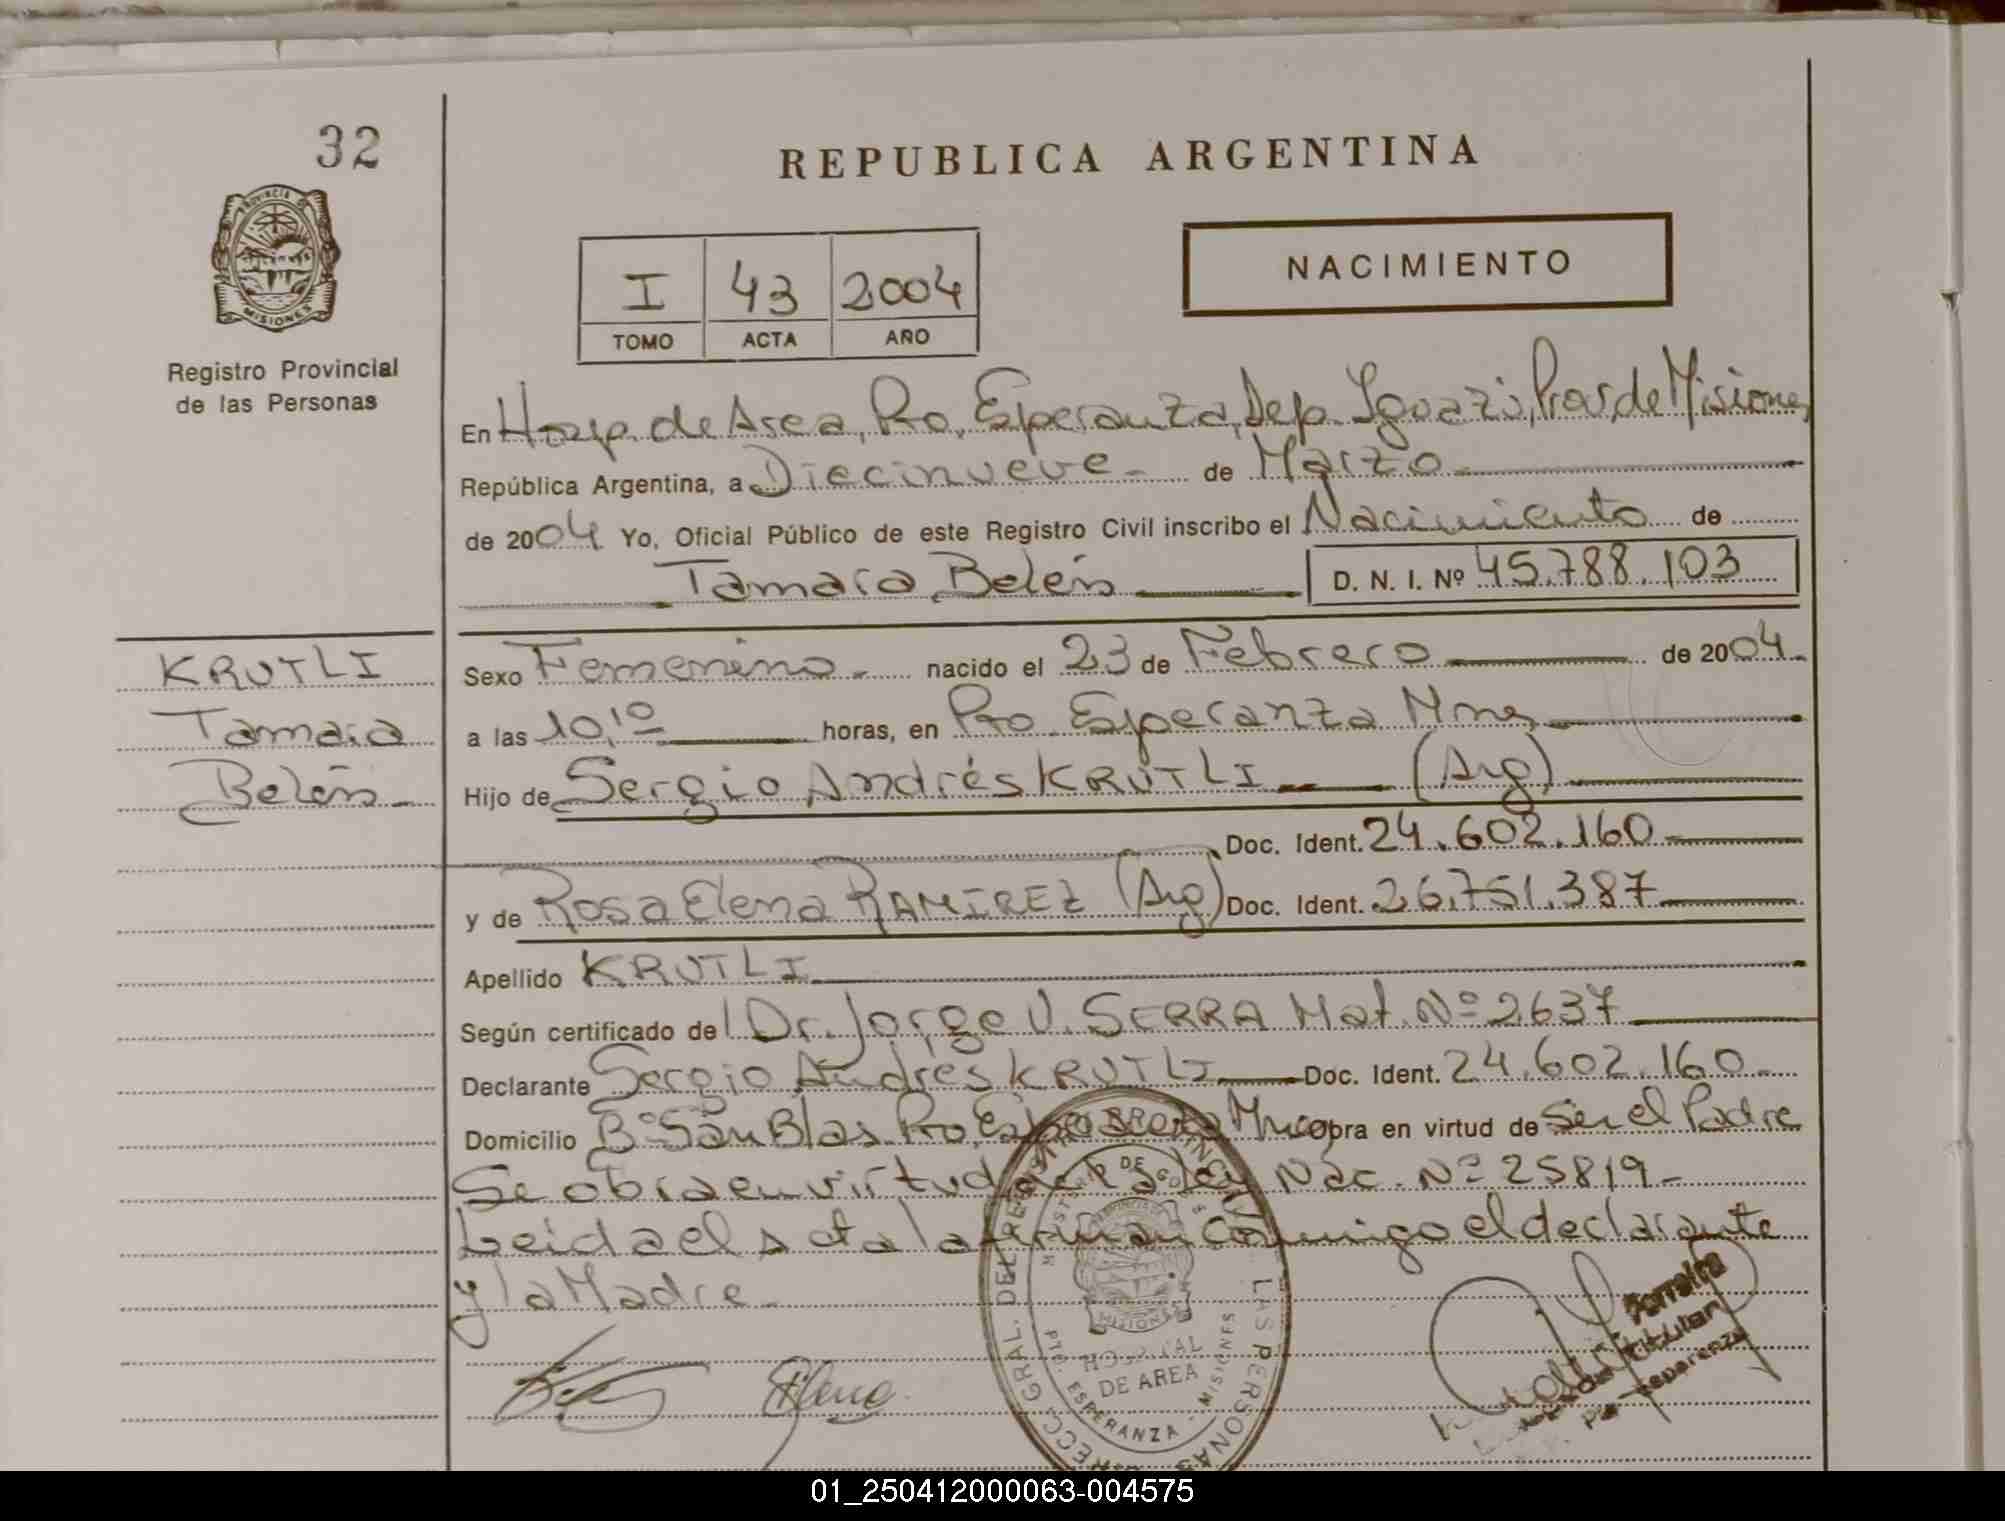 32
REPUBLICA ARGENTINA
PROVINCIA DE
MISIONES
NACIMIENTO
I 43 2004
TOMO ACTA AÑO
Registro Provincial
de las Personas
En Hosp. de Area, Pto. Esperanza, Dep. Iguazú, Prov. de Misiones
República Argentina, a Diecinueve - de Marzo
de 2004 Yo, Oficial Público de este Registro Civil inscribo el Nacimiento de
Tamara Belén D. N. I. Nº 45.788.103
KRUTLI
Tamara
Belén
Sexo Femenino - nacido el 23 de Febrero de 2004
a las 10,10 horas, en Pto. Esperanza Mnes
Hijo de Sergio Andrés KRUTLI (Arg)
Doc. Ident. 24.602.160
y de Rosa Elena RAMIREZ (Arg) Doc. Ident. 26.751.387
Apellido KRUTLI
Según certificado de Dr. Jorge V. SERRA Mat. Nº 2637
Declarante Sergio Andrés KRUTLI Doc. Ident. 24.602.160
Domicilio Bº San Blas Pto. Esperanza obra en virtud de Ser el Padre
Se obra en virtud de la Ley Nac. Nº 25819 -
Leida el acta la firman conmigo el declarante
y la Madre -
Elena
HOSPITAL
DE AREA
PTO. ESPERANZA - MISIONES
LAS PERSONAS
Ferreira
Titular
Esperanza
01_250412000063-004575